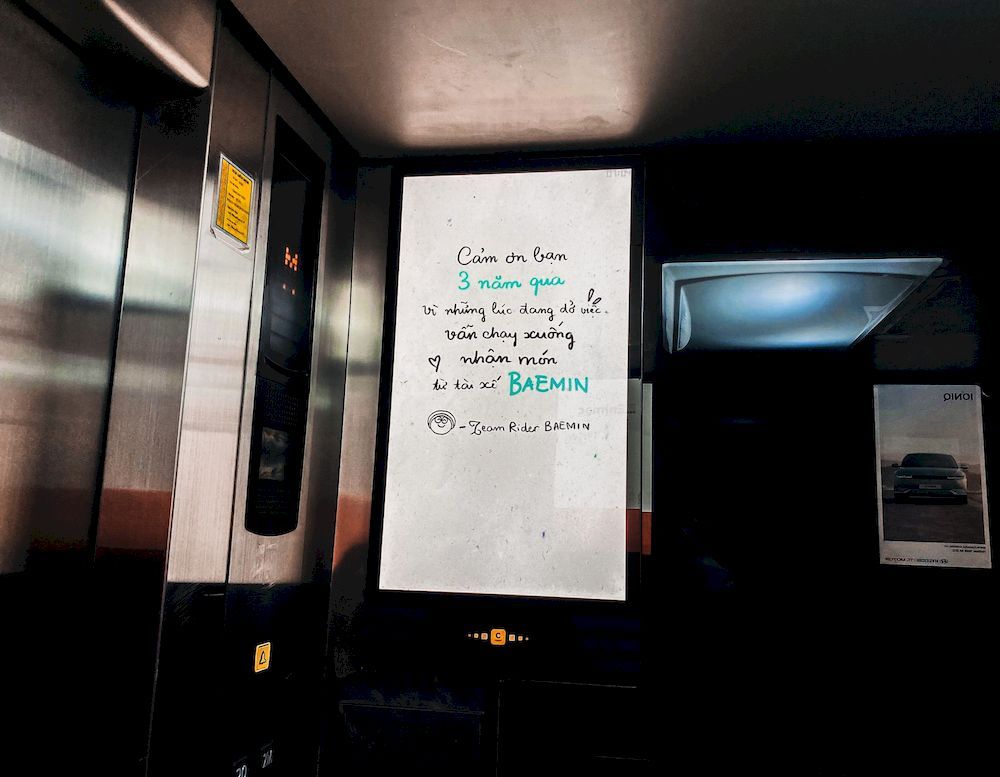 Cảm ơn bạn
3 năm qua
vì những lúc đang dở việc
vẫn chạy xuống
nhận món
từ tài xế BAEMIN
- Team Rider BAEMIN
C
IONIQ